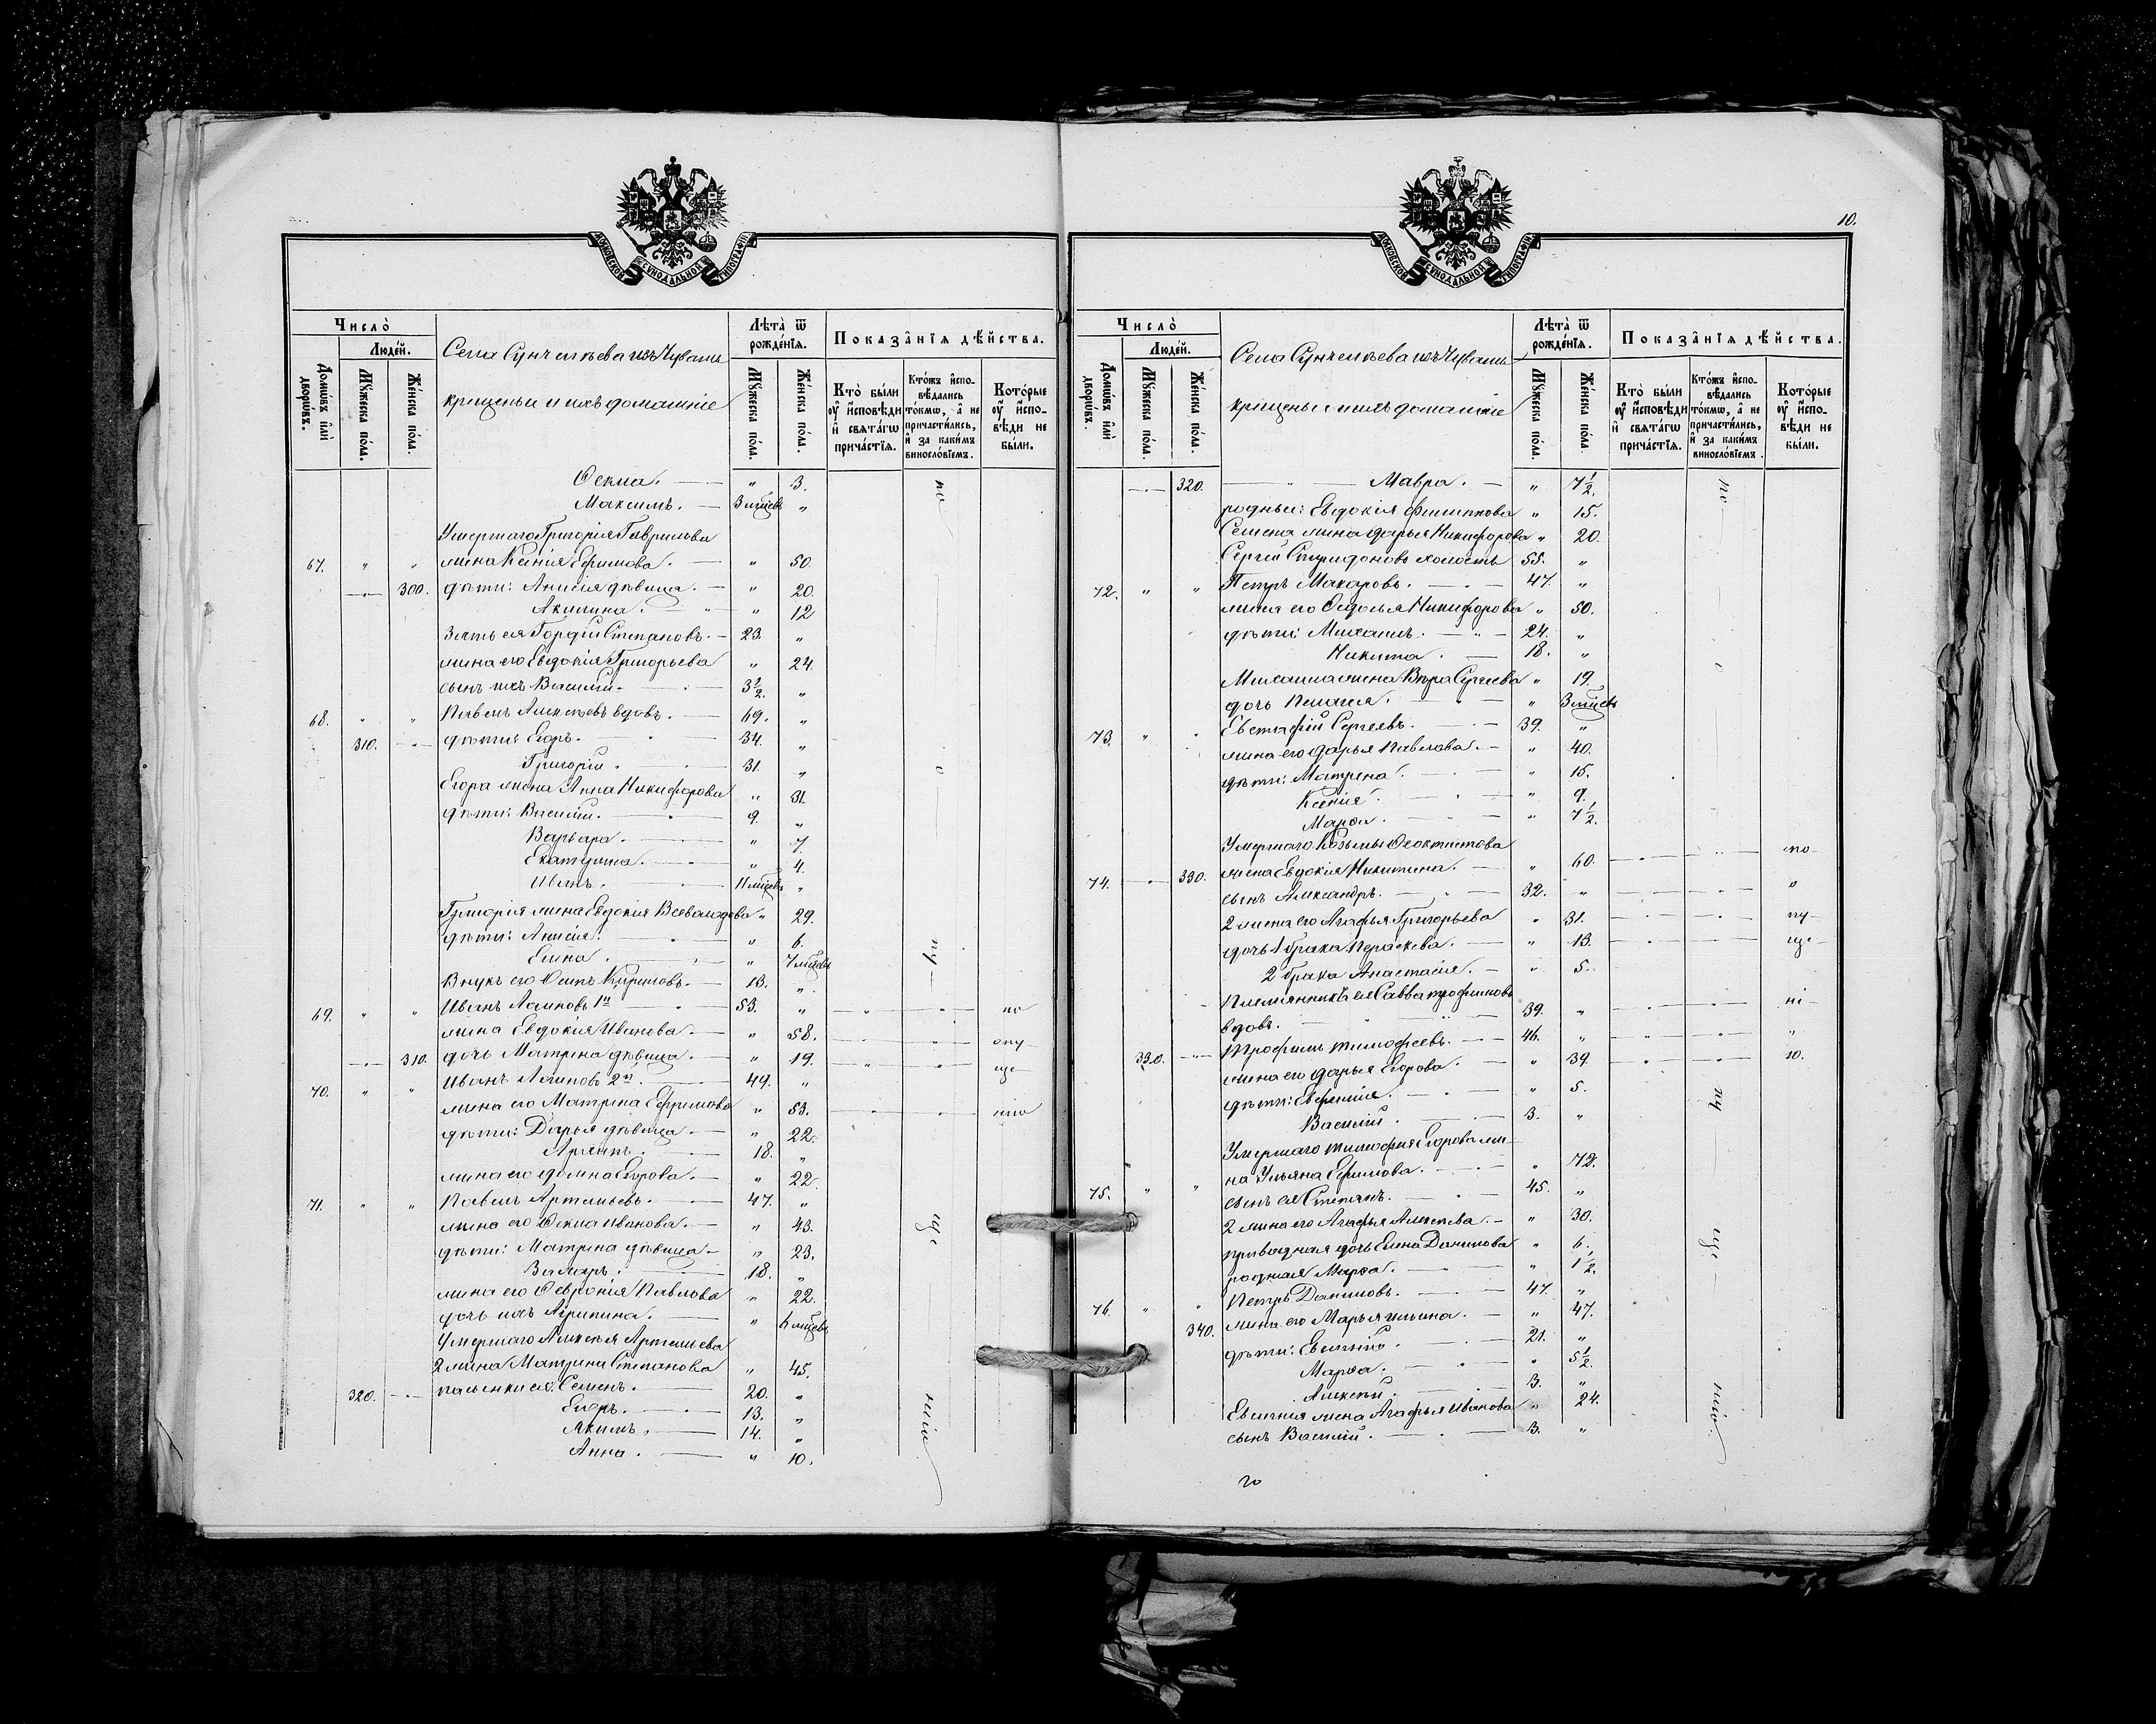 МОСКОВСКОЙ СѴНОДАЛЬНОЙ ТИПОГРАФІИ
Число̀
Людéй.
Домѡ́въ и҆лѝ дворѡ́въ.
Мꙋ́жеска по́ла.
Же́нска по́ла.
Села Сунчелѣева изъ Чувашъ
крещеныи и ихъ домашніе
Лѣта̀ ѿ рожде́нїѧ.
Мꙋ́жеска по́ла.
Же́нска по́ла.
Показа̑нїѧ дѣ́йства.
Кто̀ бы́ли оу҆ и҆сповѣди и҆ свѧта́гѡ прича́стїѧ.
Кто́жъ и҆сповѣдались то́кмѡ, а҆ не причасти́лись, и҆ за каки́мъ виносло́вїемъ.
Кото́рые оу҆ и҆сповѣди не бы́ли.
Ѳекла. — „ 3.
Максимъ. — 3 мѣсев „
Умершаго Григорія Гаврилова
67. „ „ жена Ксенія Ефимова. — „ 50.
300. дѣти: Анисія дѣвица. — „ 20.
Акилина. — „ 12
Зять ея Гордѣй Степановъ. — 23. „
жена его Евдокія Григорьева „ 24.
сынъ ихъ Василій. — 3 1/2. „
68. „ „ Павелъ Алексѣевъ вдовъ. — 69. „
310. дѣти: Егоръ. — 34. „
Григорій. — 31. „
Егора жена Анна Никифорова „ 31.
дѣти: Василій. — 9. „
Варвара. — „ 7.
Екатерина. — „ 4.
Иванъ. — „
Григорія жена Евдокія Всеволодова „ 29.
дѣти: Анисія. — „ 6.
Елена. — „ 7 мѣсев
Внукъ его Осипъ Кириловъ. — 13. „
69. „ „ Иванъ 1й — 53. „
жена Евдокія Иванова. — „ 58.
310. дочь Матрена дѣвица. — „ 19.
70. „ „ Иванъ 2й. — 49. „
жена его Матрена Ефремова „ 53.
дѣти: Дарья дѣвица. — „ 22.
Архипъ. — 18. „
жена его Домна Егорова. — „ 22.
71. „ „ Павелъ Артемьевъ. — 47. „
жена его Ѳекла Иванова. — „ 43.
дѣти: Матрена дѣвица — „ 23.
Захаръ. — 18. „
жена его Ѳевронія Павлова „ 22.
дочь ихъ Агрипина. — „ 6 мѣсев
Умершаго Алексѣя Артемьева
2 жена Матрена Степанова „ 45.
320. пасынки ея: Семенъ. — 20. „
Егоръ. — 13. „
Якимъ. — 14. „
Анна. — „ 10.
по
пу
ще
нію
по
опу
ще
нію
10.
МОСКОВСКОЙ СѴНОДАЛЬНОЙ ТИПОГРАФІИ
Число̀
Людéй.
Домѡ́въ и҆лѝ дворѡ́въ.
Мꙋ́жеска по́ла.
Же́нска по́ла.
Села Сунчелѣева изъ Чувашъ
крещеныи и ихъ домашніе
Лѣта̀ ѿ рожде́нїѧ.
Мꙋ́жеска по́ла.
Же́нска по́ла.
Показа̑нїѧ дѣ́йства.
Кто̀ бы́ли оу҆ и҆сповѣди и҆ свѧта́гѡ прича́стїѧ.
Кто́жъ и҆сповѣдались то́кмѡ, а҆ не причасти́лись, и҆ за каки́мъ виносло́вїемъ.
Кото́рые оу҆ и҆сповѣди не бы́ли.
320. Мавра. — „ 7 1/2.
родныи: Евдокія Филиппова „ 15.
Семена жена Дарья Никифорова „ 20.
Сергѣй Спиридоновъ холостъ 55. „
72. „ „ Петръ Макаровъ. — 47. „
жена его Ѳедосья Никифорова „ 50.
дѣти: Михаилъ. — 24. „
Никита. — 18. „
Михаила жена Вѣра Сергѣева „ 19.
дочь Пелагея. — „ 3 мѣсев
73. „ „ Евстафій Сергѣевъ. — 39. „
жена его Дарья Павлова. — „ 40.
дѣти: Матрена. — „ 15.
Ксенія. — „ 9.
Марѳа. — „ 7 1/2.
Умершаго Козьмы Ѳеоктистова
74. 330. жена Евдокія Никитина. — „ 60. по
сынъ Александръ. — 32. „ о
2 жена его Агафья Григорьева „ 31. пу
дочь 1 брака Параскева. — „ 13. ще
2 брака Анастасія. — „ 5.
Племянникъ ея Савва Трофимовъ
вдовъ. — 39. „ ні
330. Трофимъ Тимофеевъ. — 46. „
жена его Дарья Егорова. — „ 39 ю.
дѣти: Евфимія. — „ 5.
Василій. — 3. „
Умершаго Тимофея Егорова же
на Ульяна Ефимова. — „ 72.
75. „ „ сынъ ея Степанъ. — 45. „
2 жена его Агафья Алексѣева. — „ 30.
приводная дочь Елена Данилова „ 6.
родная Марѳа. — „ 1 1/2.
76. „ „ Петръ Даниловъ. — 47. „
340. жена его Марья Ильина. — „ 47.
дѣти: Евгеній. — 21. „
Марѳа. — „ 5 1/2.
Алексѣй. — 3. „
Евгенія жена Агафья Иванова „ 24.
сынъ Василій. — 3. „
по
о
пу
ще
нію